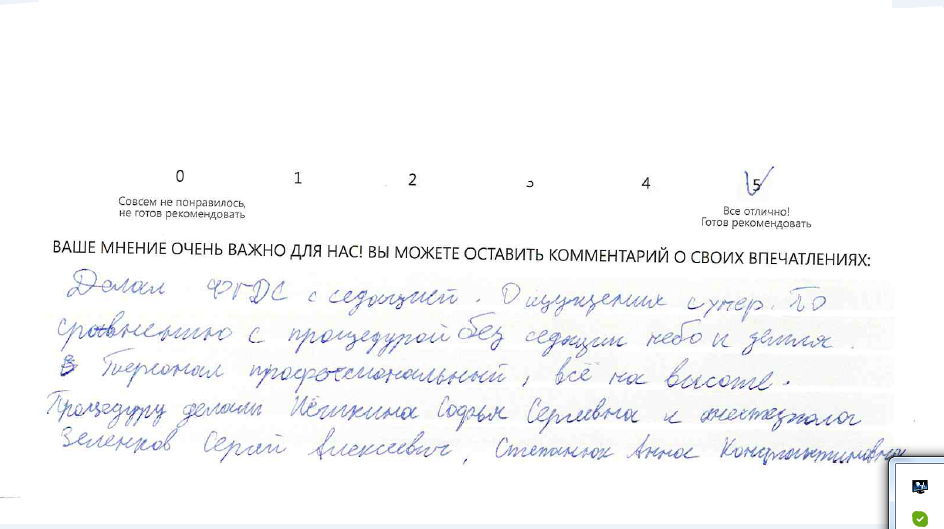 0 1 2 3 4 5
Совсем не понравилось,
не готов рекомендовать
Все отлично!
Готов рекомендовать
ВАШЕ МНЕНИЕ ОЧЕНЬ ВАЖНО ДЛЯ НАС! ВЫ МОЖЕТЕ ОСТАВИТЬ КОММЕНТАРИЙ О СВОИХ ВПЕЧАТЛЕНИЯХ:
Делал ФГДС с седацией. Ощущения супер. По
сравнению с процедурой без седации небо и земля.
Персонал профессиональный, всё на высоте.
Процедуру делали Софья Сергеевна и анестезиолог
Зеленков Сергей Алексеевич, Степанюк Анна Константиновна